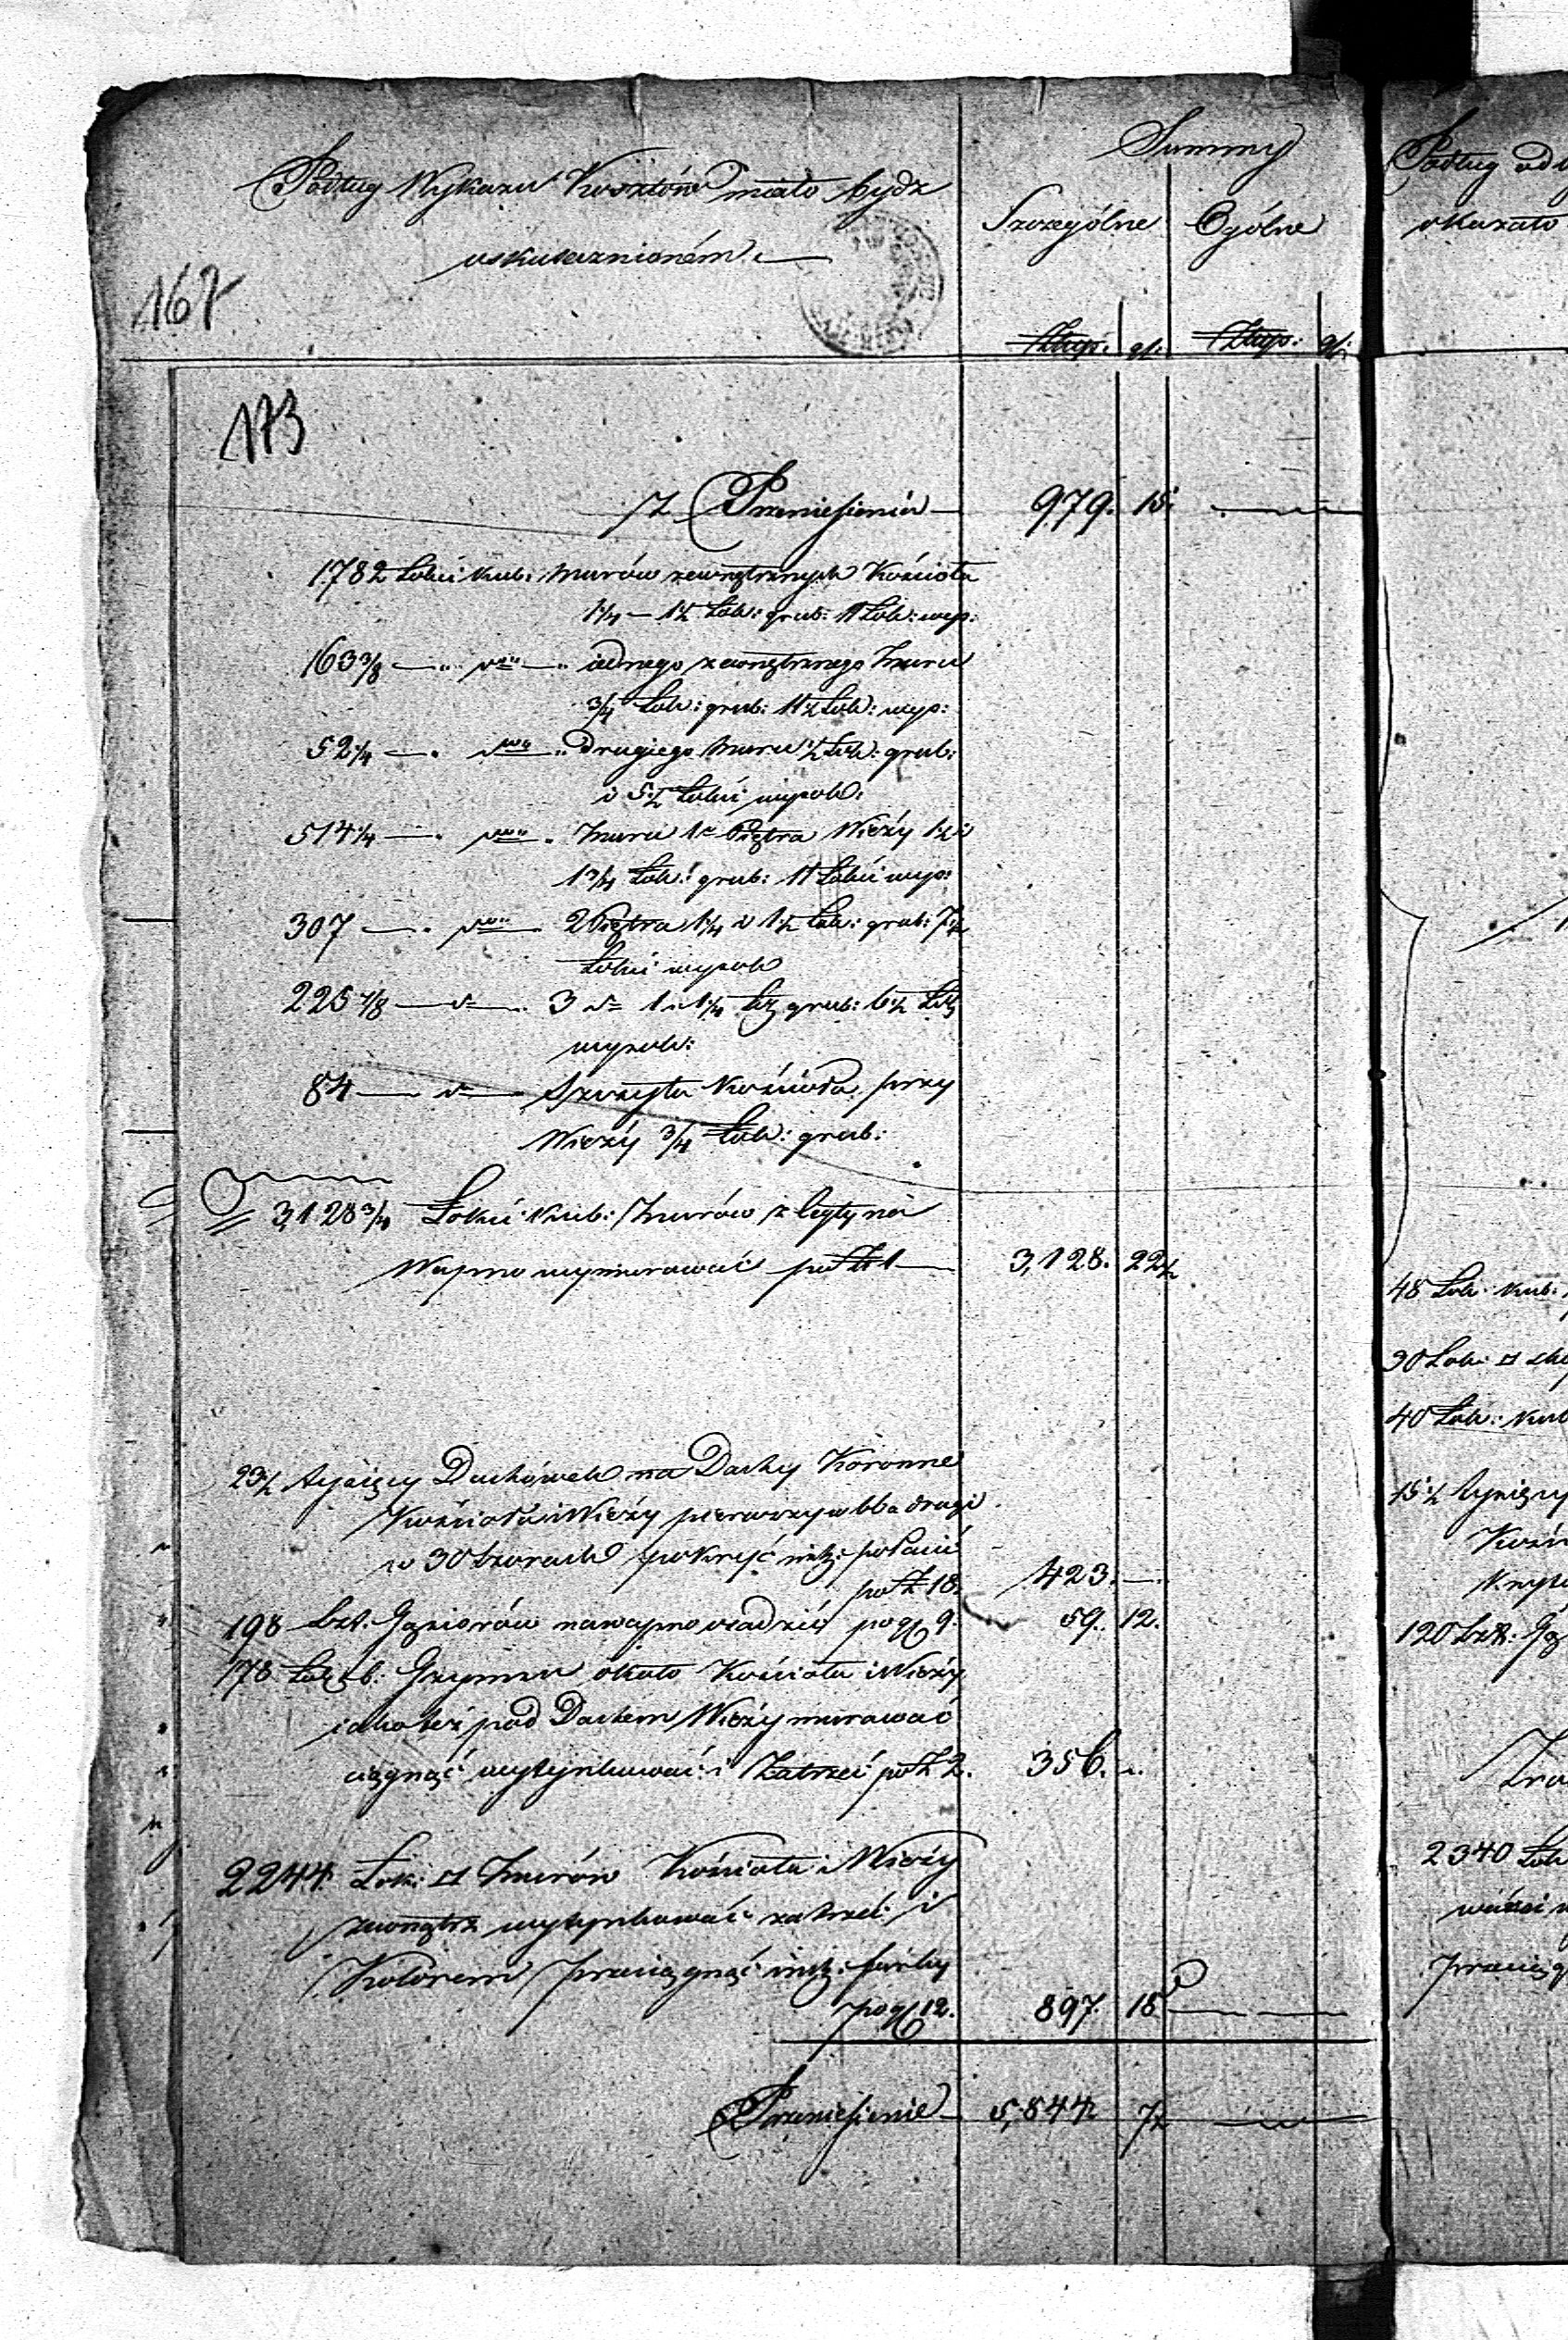 Podług Wykazu Kosztów miało bydź
uskutecznioném
Summy
Szczególne
Ogólne
Złtup: gr: Złtup: gr:
167
173
Z Przeniesienia 979. 15.
1782 Łokci kub: Murów zewnętrznych Kościoła
1¼ — 1½ Łok: grub: 11 Łok: wys:
163 3/8 — " — iednego zewnętrznego Muru
¾ Łok: grub: 11½ Łok: wys:
52¼ — " — drugiego Muru ½ Łok: grub:
i 5½ Łokci wysok:
514¼ — " — Muru 1o Piętra Wieży 1½ i
1¾ Łok: grub: 11 Łokci wys:
307 — 2 Piętra 1¼ i 1½ Łok: grub: 7½
Łokci wysok
225 7/8 — do — 3 do 1 i 1¼ grub: 6½ Łok
wysok:
84 — do — Szczyta Kościoła przy
Wieży ¾ Łok: grub:
3,128¾ Łokci kub: Murów z Cegły na
Wapno wymurować po Zł 1 — 3,128. 22½
23½ tysięcy Dachówek na Dachy Koronne
Kościoła i Wieży pierwszy w 66 a drugi
w 30 pokryć połacić
po Zł 18. 423. —
198 Szt. Gąsiorów na wapno osadzić po gr 9. 59. 12.
178 Łok b: Gzymsu około Kościoła i Wieży
iako też pod Dachem Wieży murować
ciągnąć wytynkować i Zatrzeć po Zł 2. 356. "
2244 Łok: □ Murów Kościoła i Wieży
zewnątrz wytynkować zatrzeć i
Kolorem przeciągnąć farby
po gr 12. 897. 18
Przeniesienie 5,844 7½
Podług
okazało
48 Łok. kub.
30 Łok: □
40 Łok: kub
15½ tysięcy
120 Szt:
2340 Łok